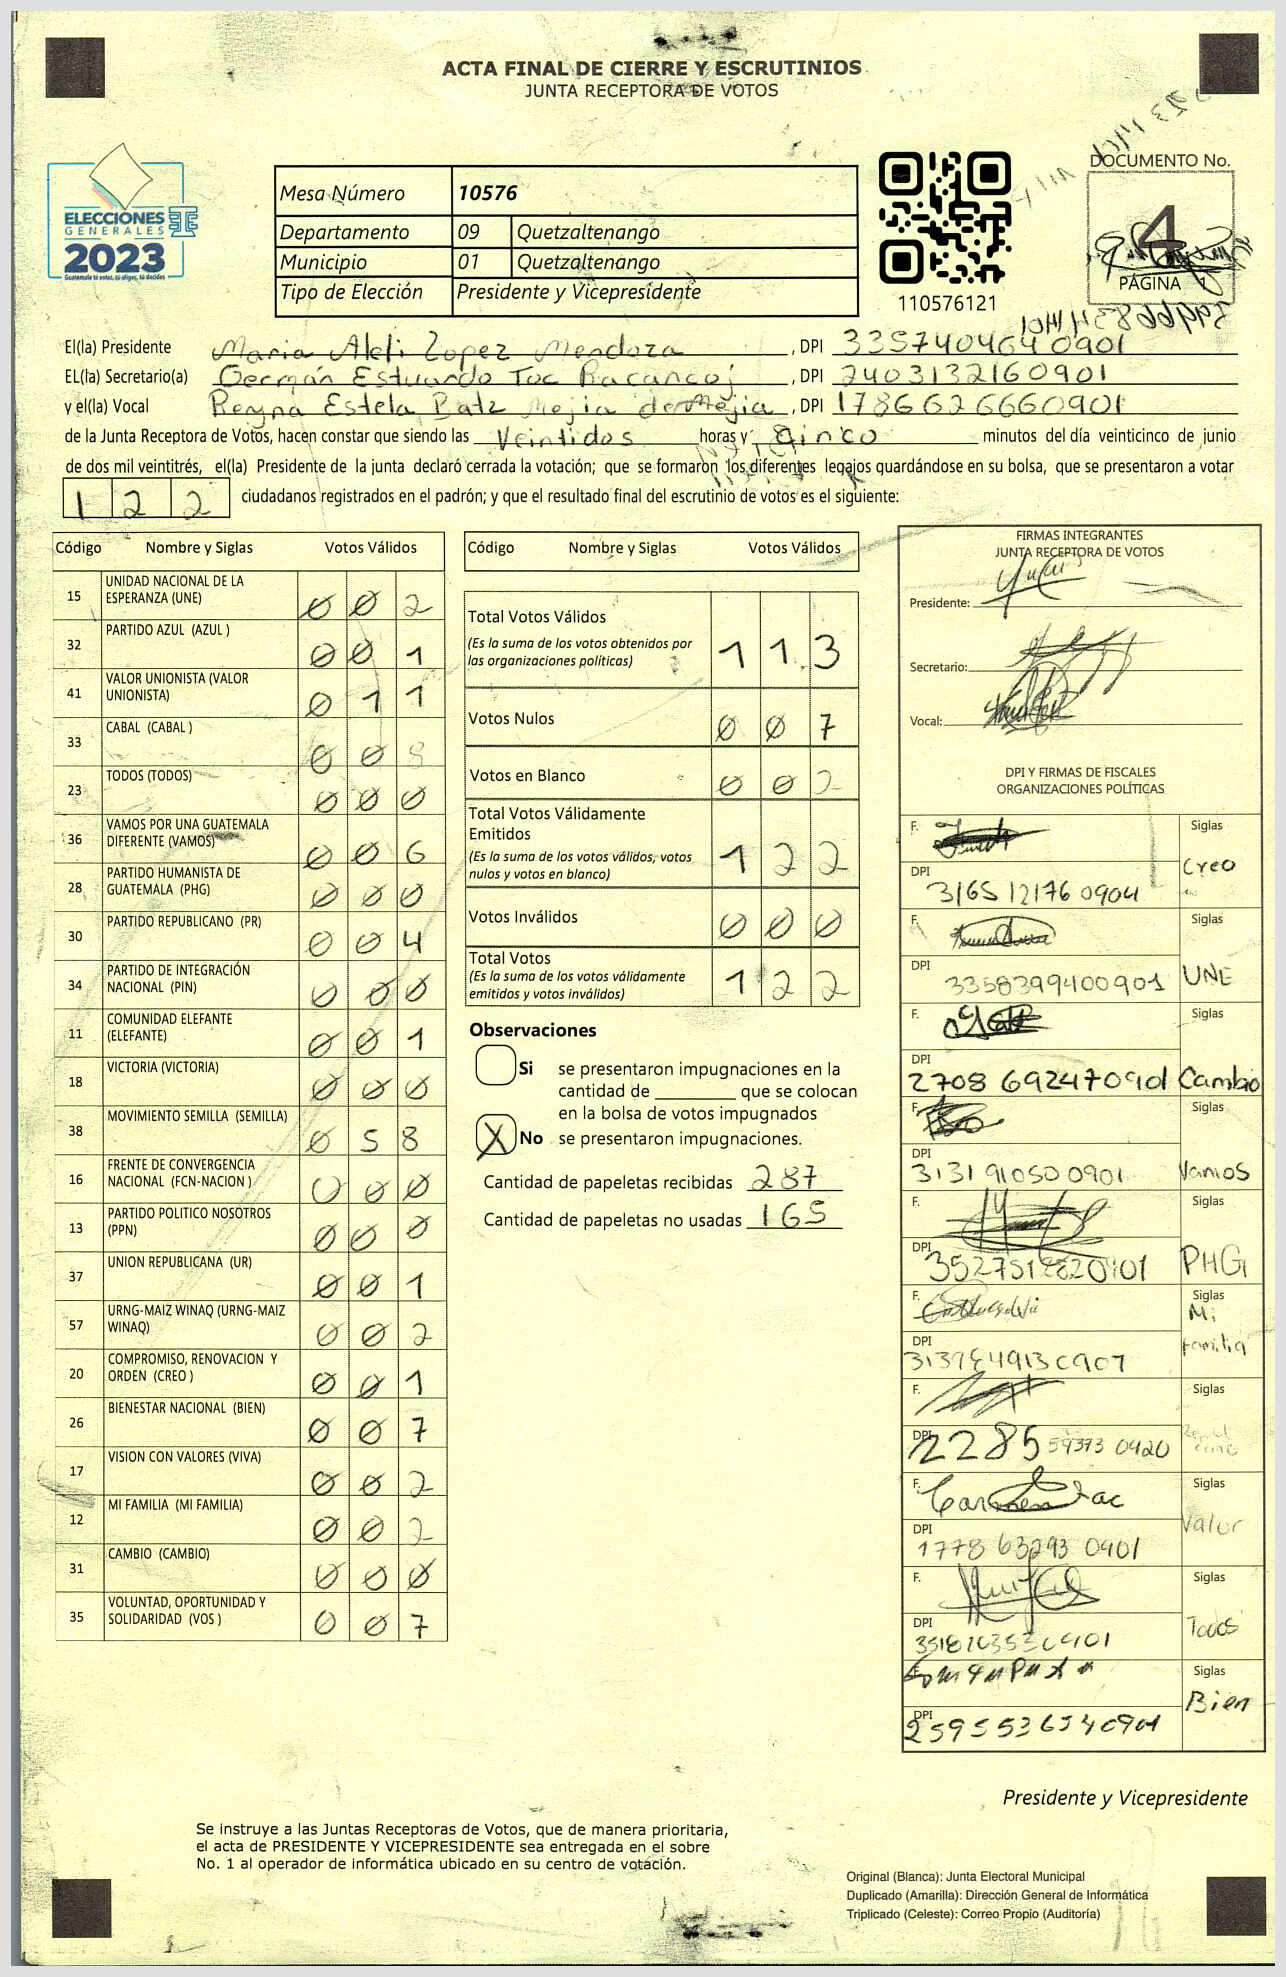 ACTA FINAL DE CIERRE Y ESCRUTINIOS
JUNTA RECEPTORA DE VOTOS
ELECCIONES
GENERALES
2023
Guatemala tú votas, tú eliges, tú decides
Mesa Número 10576
Departamento 09 Quetzaltenango
Municipio 01 Quetzaltenango
Tipo de Elección Presidente y Vicepresidente
110576121
DOCUMENTO No.
4
PÁGINA 1
El(la) Presidente Maria Aleli Lopez Mendoza, DPI 3357404640901
EL(la) Secretario(a) Germán Estuardo Toc Racancoj, DPI 2403132160901
y el(la) Vocal Reyna Estela Batz Mejia de Mejia, DPI 1786626660901
de la Junta Receptora de Votos, hacen constar que siendo las Veintidos horas y Cinco minutos del día veinticinco de junio
de dos mil veintitrés, el(la) Presidente de la junta declaró cerrada la votación; que se formaron los diferentes legajos guardándose en su bolsa, que se presentaron a votar
122 ciudadanos registrados en el padrón; y que el resultado final del escrutinio de votos es el siguiente:
Código Nombre y Siglas Votos Válidos
15 UNIDAD NACIONAL DE LA ESPERANZA (UNE) 0 0 2
32 PARTIDO AZUL (AZUL ) 0 0 1
41 VALOR UNIONISTA (VALOR UNIONISTA) 0 1 1
33 CABAL (CABAL ) 0 0 8
23 TODOS (TODOS) 0 0 0
36 VAMOS POR UNA GUATEMALA DIFERENTE (VAMOS) 0 0 6
28 PARTIDO HUMANISTA DE GUATEMALA (PHG) 0 0 0
30 PARTIDO REPUBLICANO (PR) 0 0 4
34 PARTIDO DE INTEGRACIÓN NACIONAL (PIN) 0 0 0
11 COMUNIDAD ELEFANTE (ELEFANTE) 0 0 1
18 VICTORIA (VICTORIA) 0 0 0
38 MOVIMIENTO SEMILLA (SEMILLA) 0 5 8
16 FRENTE DE CONVERGENCIA NACIONAL (FCN-NACION ) 0 0 0
13 PARTIDO POLITICO NOSOTROS (PPN) 0 0 0
37 UNION REPUBLICANA (UR) 0 0 1
57 URNG-MAIZ WINAQ (URNG-MAIZ WINAQ) 0 0 2
20 COMPROMISO, RENOVACION Y ORDEN (CREO ) 0 0 1
26 BIENESTAR NACIONAL (BIEN) 0 0 7
17 VISION CON VALORES (VIVA) 0 0 2
12 MI FAMILIA (MI FAMILIA) 0 0 2
31 CAMBIO (CAMBIO) 0 0 0
35 VOLUNTAD, OPORTUNIDAD Y SOLIDARIDAD (VOS ) 0 0 7
Código Nombre y Siglas Votos Válidos
Total Votos Válidos 1 1 3
(Es la suma de los votos obtenidos por
las organizaciones políticas)
Votos Nulos 0 0 7
Votos en Blanco 0 0 2
Total Votos Válidamente
Emitidos 1 2 2
(Es la suma de los votos válidos, votos
nulos y votos en blanco)
Votos Inválidos 0 0 0
Total Votos 1 2 2
(Es la suma de los votos válidamente
emitidos y votos inválidos)
Observaciones
Si se presentaron impugnaciones en la
cantidad de ________ que se colocan
en la bolsa de votos impugnados
X No se presentaron impugnaciones.
Cantidad de papeletas recibidas 287
Cantidad de papeletas no usadas 165
FIRMAS INTEGRANTES
JUNTA RECEPTORA DE VOTOS
Presidente:
Secretario:
Vocal:
DPI Y FIRMAS DE FISCALES
ORGANIZACIONES POLÍTICAS
F. Siglas
Creo
DPI
3165 12176 0904
F. Siglas
DPI
3358399400901 UNE
F. Siglas
DPI
2708 69247 0901 Cambio
F. Siglas
DPI
3131 91050 0901 Vamos
F. Siglas
DPI
PHG
F. Siglas
Mi
familia
DPI
F. Siglas
DPI
2285 59373 0920
F. Siglas
Valor
DPI
1778 63293 0901
F. Siglas
Todos
DPI
F. Siglas
Bien
DPI
2595536540901
Presidente y Vicepresidente
Se instruye a las Juntas Receptoras de Votos, que de manera prioritaria,
el acta de PRESIDENTE Y VICEPRESIDENTE sea entregada en el sobre
No. 1 al operador de informática ubicado en su centro de votación.
Original (Blanca): Junta Electoral Municipal
Duplicado (Amarilla): Dirección General de Informática
Triplicado (Celeste): Correo Propio (Auditoría)